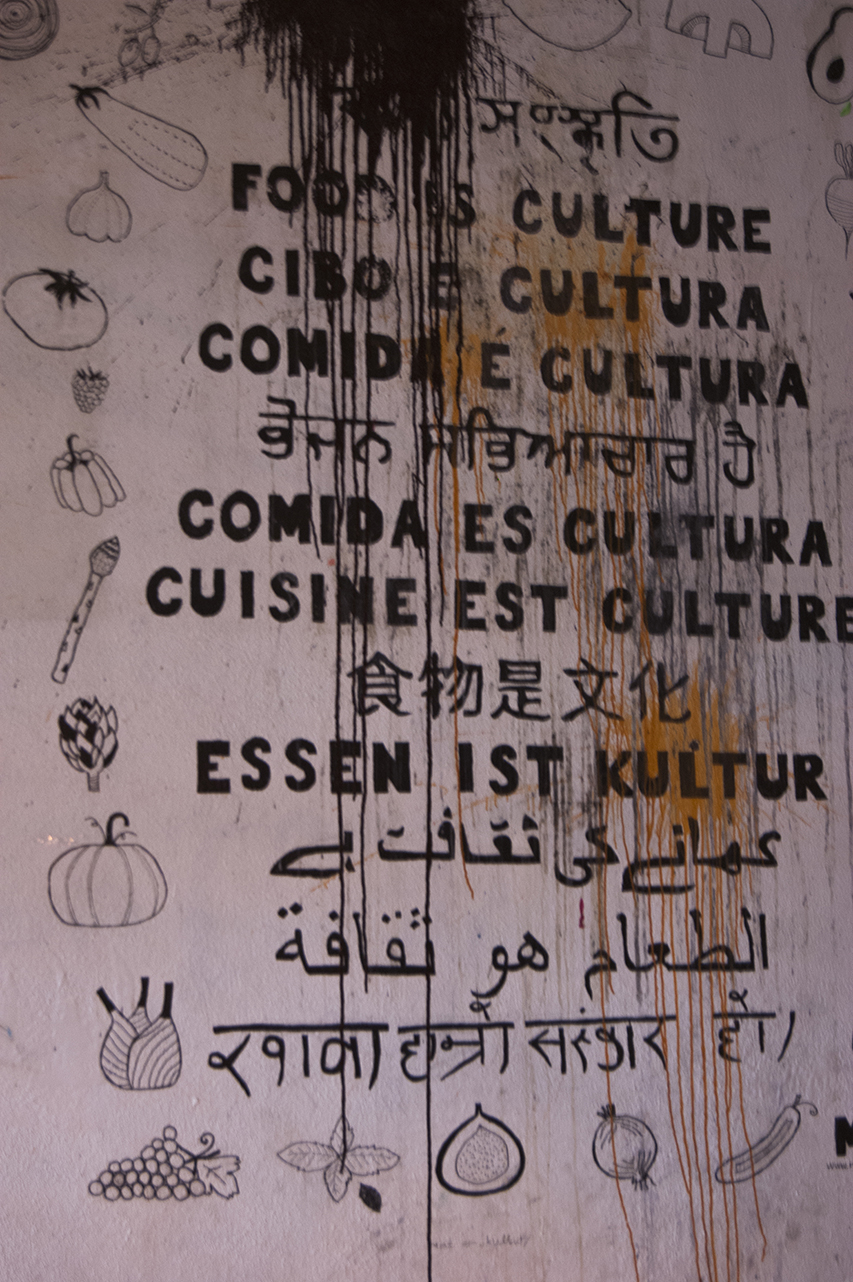 সংস্কৃতি
FOOD IS CULTURE
CIBO E CULTURA
COMIDA É CULTURA
ਭੋਜਨ ਸਭਿਆਚਾਰ ਹੈ
COMIDA ES CULTURA
CUISINE EST CULTURE
食物是文化
ESSEN IST KULTUR
کھانے کی ثقافت ہے
الطعام هو ثقافة